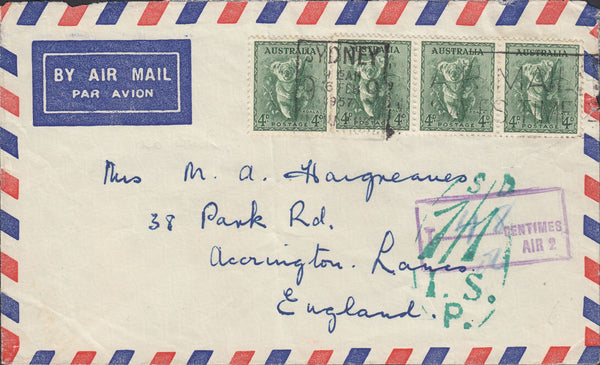 BY AIR MAIL
PAR AVION
AUSTRALIA AUSTRALIA AUSTRALIA AUSTRALIA
4D 4D 4D 4D
POSTAGE POSTAGE POSTAGE POSTAGE
SYDNEY
1957
AIR MAIL
Mrs M. A. Hargreaves
38 Park Rd.
Accrington. Lancs.
England.
S/D
T
CENTIMES
AIR 2
I. S.
P.